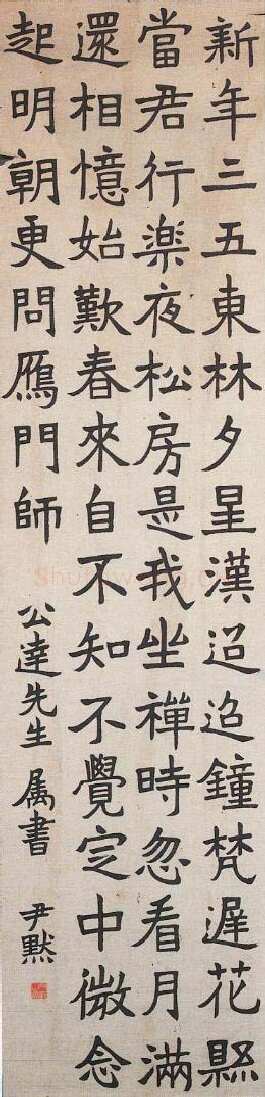 新年三五東林夕星漢迢迢鐘梵遲花縣
當君行楽夜松房是我坐禪時忽看月滿
還相憶始歎春來自不知不覺定中微念
起明朝更問鴈門師
公達先生属書 尹默